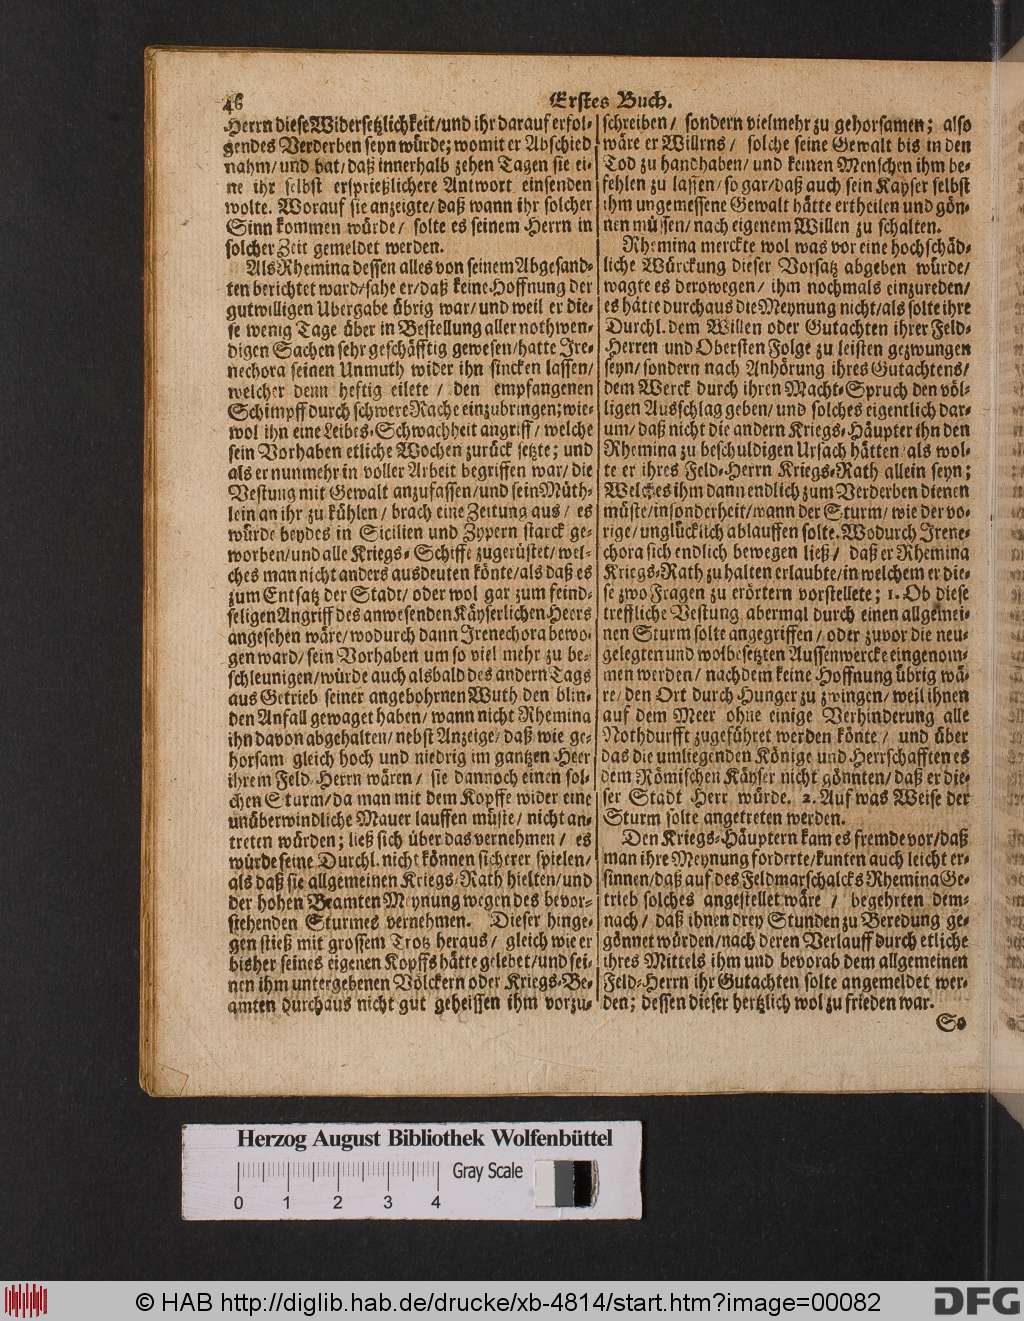 46
Erstes Buch.
Herrn diese Widersetzlichkeit/und ihr darauf erfol-
gendes Verderben seyn würde; womit er Abschied
nahm/ und bat/ daß innerhalb zehen Tagen sie ei-
ne ihr selbst ersprießlichere Antwort einsenden
wolte. Worauf sie anzeigte/ daß wann ihr solcher
Sinn kommen würde/ solte es seinem Herrn in
solcher Zeit gemeldet werden.
Als Rhemina dessen alles von seinem Abgesand-
ten berichtet ward/ sahe er/ daß keine Hoffnung der
gutwilligen Ubergabe übrig war/ und weil er die-
se wenig Tage über in Bestellung aller nothwen-
digen Sachen sehr geschäfftig gewesen/ hatte Ire-
nechora seinen Unmuth wider ihn sincken lassen/
welcher denn heftig eilete/ den empfangenen
Schimpff durch schwere Rache einzubringen; wie-
wol ihn eine Leibes-Schwachheit angriff/ welche
sein Vorhaben etliche Wochen zurück setzte; und
als er nunmehr in voller Arbeit begriffen war/ die
Vestung mit Gewalt anzufassen/ und sein Müth-
lein an ihr zu kühlen/ brach eine Zeitung aus/ es
würde beydes in Sicilien und Zypern starck ge-
worben/ und alle Kriegs-Schiffe zugerüstet/ wel-
ches man nicht anders ausdeuten könte/ als daß es
zum Entsatz der Stadt/ oder wol gar zum feind-
seligen Angriff des anwesenden Käyserlichen Heers
angesehen wäre/ wodurch dann Irenechora bewo-
gen ward/ sein Vorhaben um so viel mehr zu be-
schleunigen/ würde auch alsbald des andern Tags
aus Getrieb seiner angebohrnen Wuth den blin-
den Anfall gewaget haben/ wann nicht Rhemina
ihn davon abgehalten/ nebst Anzeige/ daß wie ge-
horsam gleich hoch und niedrig im gantzen Heer
ihrem Feld-Herrn wären/ sie dannoch einen sol-
chen Sturm/ da man mit dem Kopffe wider eine
unüberwindliche Mauer lauffen müste/ nicht an-
treten würden; ließ sich über das vernehmen/ es
würde seine Durchl. nicht können sicherer spielen/
als daß sie allgemeinen Kriegs-Rath hielten/ und
der hohen Beamten Meynung wegen des bevor-
stehenden Sturmes vernehmen. Dieser hinge-
gen stieß mit grossem Trotz heraus/ gleich wie er
bisher seines eigenen Kopffs hätte gelebet/ und sei-
nen ihm untergebenen Völckern oder Kriegs-Be-
amten durchaus nicht gut geheissen ihm vorzu-
schreiben/ sondern vielmehr zu gehorsamen; also
wäre er Willens/ solche seine Gewalt bis in den
Tod zu handhaben/ und keinen Menschen ihm be-
fehlen zu lassen/ so gar/ daß auch sein Kayser selbst
ihm ungemessene Gewalt hätte ertheilen und gön-
nen müssen/ nach eigenem Willen zu schalten.
Rhemina merckte wol was vor eine hochschäd-
liche Würckung dieser Vorsatz abgeben würde/
wagte es derowegen/ ihm nochmals einzureden/
es hätte durchaus die Meynung nicht/ als solte ihre
Durchl. dem Willen oder Gutachten ihrer Feld-
Herren und Obersten Folge zu leisten gezwungen
seyn/ sondern nach Anhörung ihres Gutachtens/
dem Werck durch ihren Macht-Spruch den völ-
ligen Ausschlag geben/ und solches eigentlich dar-
um/ daß nicht die andern Kriegs-Häupter ihn den
Rhemina zu beschuldigen Ursach hätten/ als wol-
te er ihres Feld-Herrn Kriegs-Rath allein seyn;
Welches ihm dann endlich zum Verderben dienen
müste/ insonderheit/ wann der Sturm/ wie der vo-
rige/ unglücklich ablauffen solte. Wodurch Irene-
chora sich endlich bewegen ließ/ daß er Rhemina
Kriegs-Rath zu halten erlaubte/ in welchem er die-
se zwo Fragen zu erörtern vorstellete; 1. Ob diese
treffliche Vestung abermal durch einen allgemei-
nen Sturm solte angegriffen/ oder zuvor die neu-
gelegten und wolbesetzten Aussenwercke eingenom-
men werden/ nachdem keine Hoffnung übrig wä-
re/ den Ort durch Hunger zu zwingen/ weil ihnen
auf dem Meer ohne einige Verhinderung alle
Nothdurfft zugeführet werden könte/ und über
das die umliegenden Könige und Herrschafften es
dem Römischen Käyser nicht gönnten/ daß er die-
ser Stadt Herr würde. 2. Auf was Weise der
Sturm solte angetreten werden.
Den Kriegs-Häuptern kam es fremde vor/ daß
man ihre Meynung forderte/ kunten auch leicht er-
sinnen/ daß auf des Feldmarschalcks Rhemina Ge-
trieb solches angestellet wäre/ begehrten dem-
nach/ daß ihnen drey Stunden zu Beredung ge-
gönnet würden/ nach deren Verlauff durch etliche
ihres Mittels ihm und bevorab dem allgemeinen
Feld-Herrn ihr Gutachten solte angemeldet wer-
den; dessen dieser hertzlich wol zu frieden war.
So
Herzog August Bibliothek Wolfenbüttel
Gray Scale
0 1 2 3 4
© HAB http://diglib.hab.de/drucke/xb-4814/start.htm?image=00082
DFG